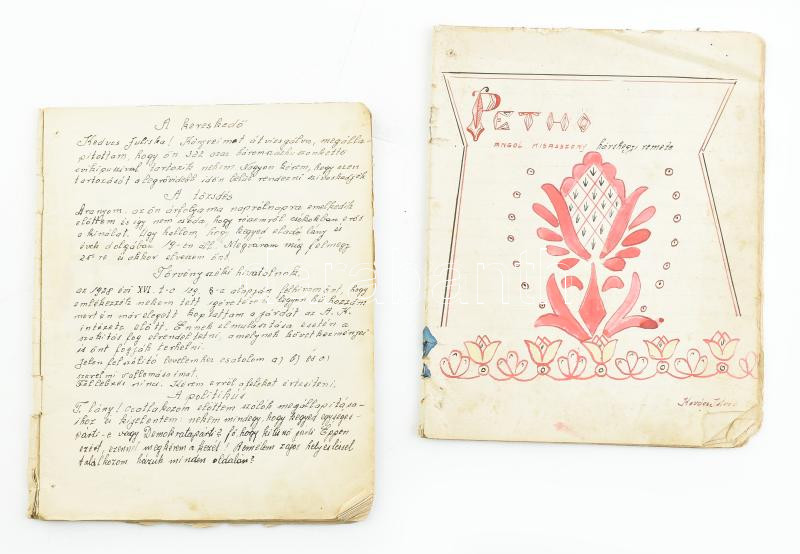 A kereskedő
Kedves Juliska! Könyveimet átvizsgálva, megálla-
pítottam, hogy ön 322 azaz háromszázhuszonkettő
cukipuszival tartozik nekem. Nagyon kérem, hogy ezen
tartozását a legrövidebb időn belül rendezni szíveskedjék.
A tőzsdés
Aranyom, az ön árfolyama napról napra emelkedik
előttem és így nem csoda, hogy részemről csókokban erős
a kínálat. Úgy hallom, hogy kegyed eladó lány és
évek dolgában 19-en áll. Megvárom míg felmegy
25-re és akkor elveszem önt.
Törvényszéki hivatalnok
az 1928 évi XVI. t-c 49. §-a alapján felhívom önt, hogy
emlékezzék nekem tett ígéretére: legyen hű hozzám
mert én már eleget koptattam a járdát az A. K.
intézete előtt. Ennek elmulasztása esetén a
szakítás fog elrendeltetni, amelynek következményei
is önt fogják terhelni.
Jelen felszólító levelemhez csatolom a) b) és c)
szerelmi vallomásaimat.
Fellebbezés nincs. Kérem erről a feleket értesíteni.
A politikus
T. lány! Csatlakozom előttem szólók megállapításá-
hoz és kijelentem: nekem mindegy, hogy kegyed egységes-
párti-e vagy Demokratapárti? fő, hogy kitűnő parti. Éppen
ezért, ezennel megkérem a kezét! Remélem zajos helyesléssel
találkozom házuk minden oldalán?
PETHO
ANGOL KISASSZONY hárshegyi remete
Kovács